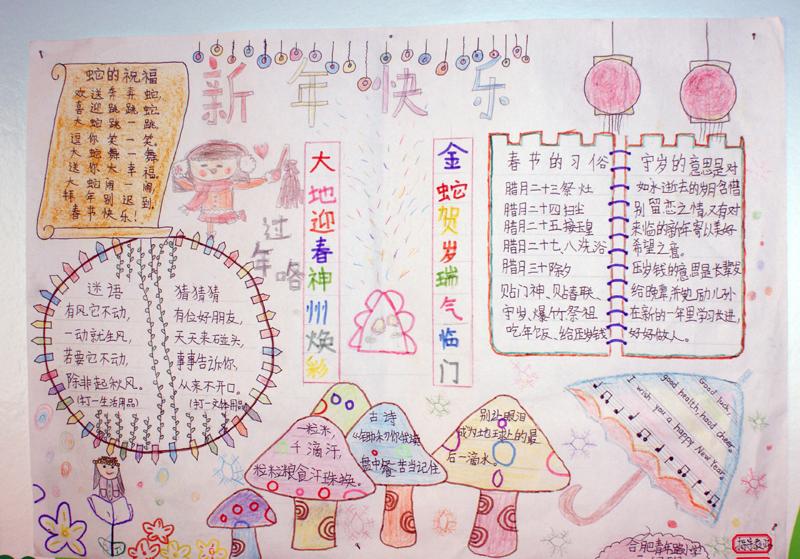 新年快乐
蛇的祝福
欢送弃弃蛇,
喜迎跳跳蛇,
大蛇跳一跳,
逗你笑一笑。
大蛇舞一舞
送你大幸福,
大蛇闹一闹
拜年别迟到
春节快乐!
过年咯
大地迎春神州焕彩
金蛇贺岁瑞气临门
春节的习俗
腊月二十三祭灶
腊月二十四扫尘
腊月二十五接玉皇
腊月二十七、八洗浴
腊月三十除夕
贴门神、贴春联、
守岁、爆竹祭祖
吃年饭、给压岁钱
守岁的意思是对
如水逝去的岁月含惜
别留恋之情,又有对
来临的新年寄以美好
希望之意。
压岁钱的意思是长辈发
给晚辈,勉励儿孙
在新的一年里学习长进,
好好做人。
迷语
有风它不动,
一动就生风,
若要它不动,
除非起秋风。
(打一生活用品)
猜猜猜
有位好朋友,
天天来碰头,
事事告诉你,
从来不开口。
(打一文体用品)
一粒米,
千滴汗,
粒粒粮食汗珠换。
古诗
盘中餐苦当记住
别让眼泪
成为地球上的最
后一滴水。
Good luck,
good health, hood cheer.
I wish you a happy New Year.